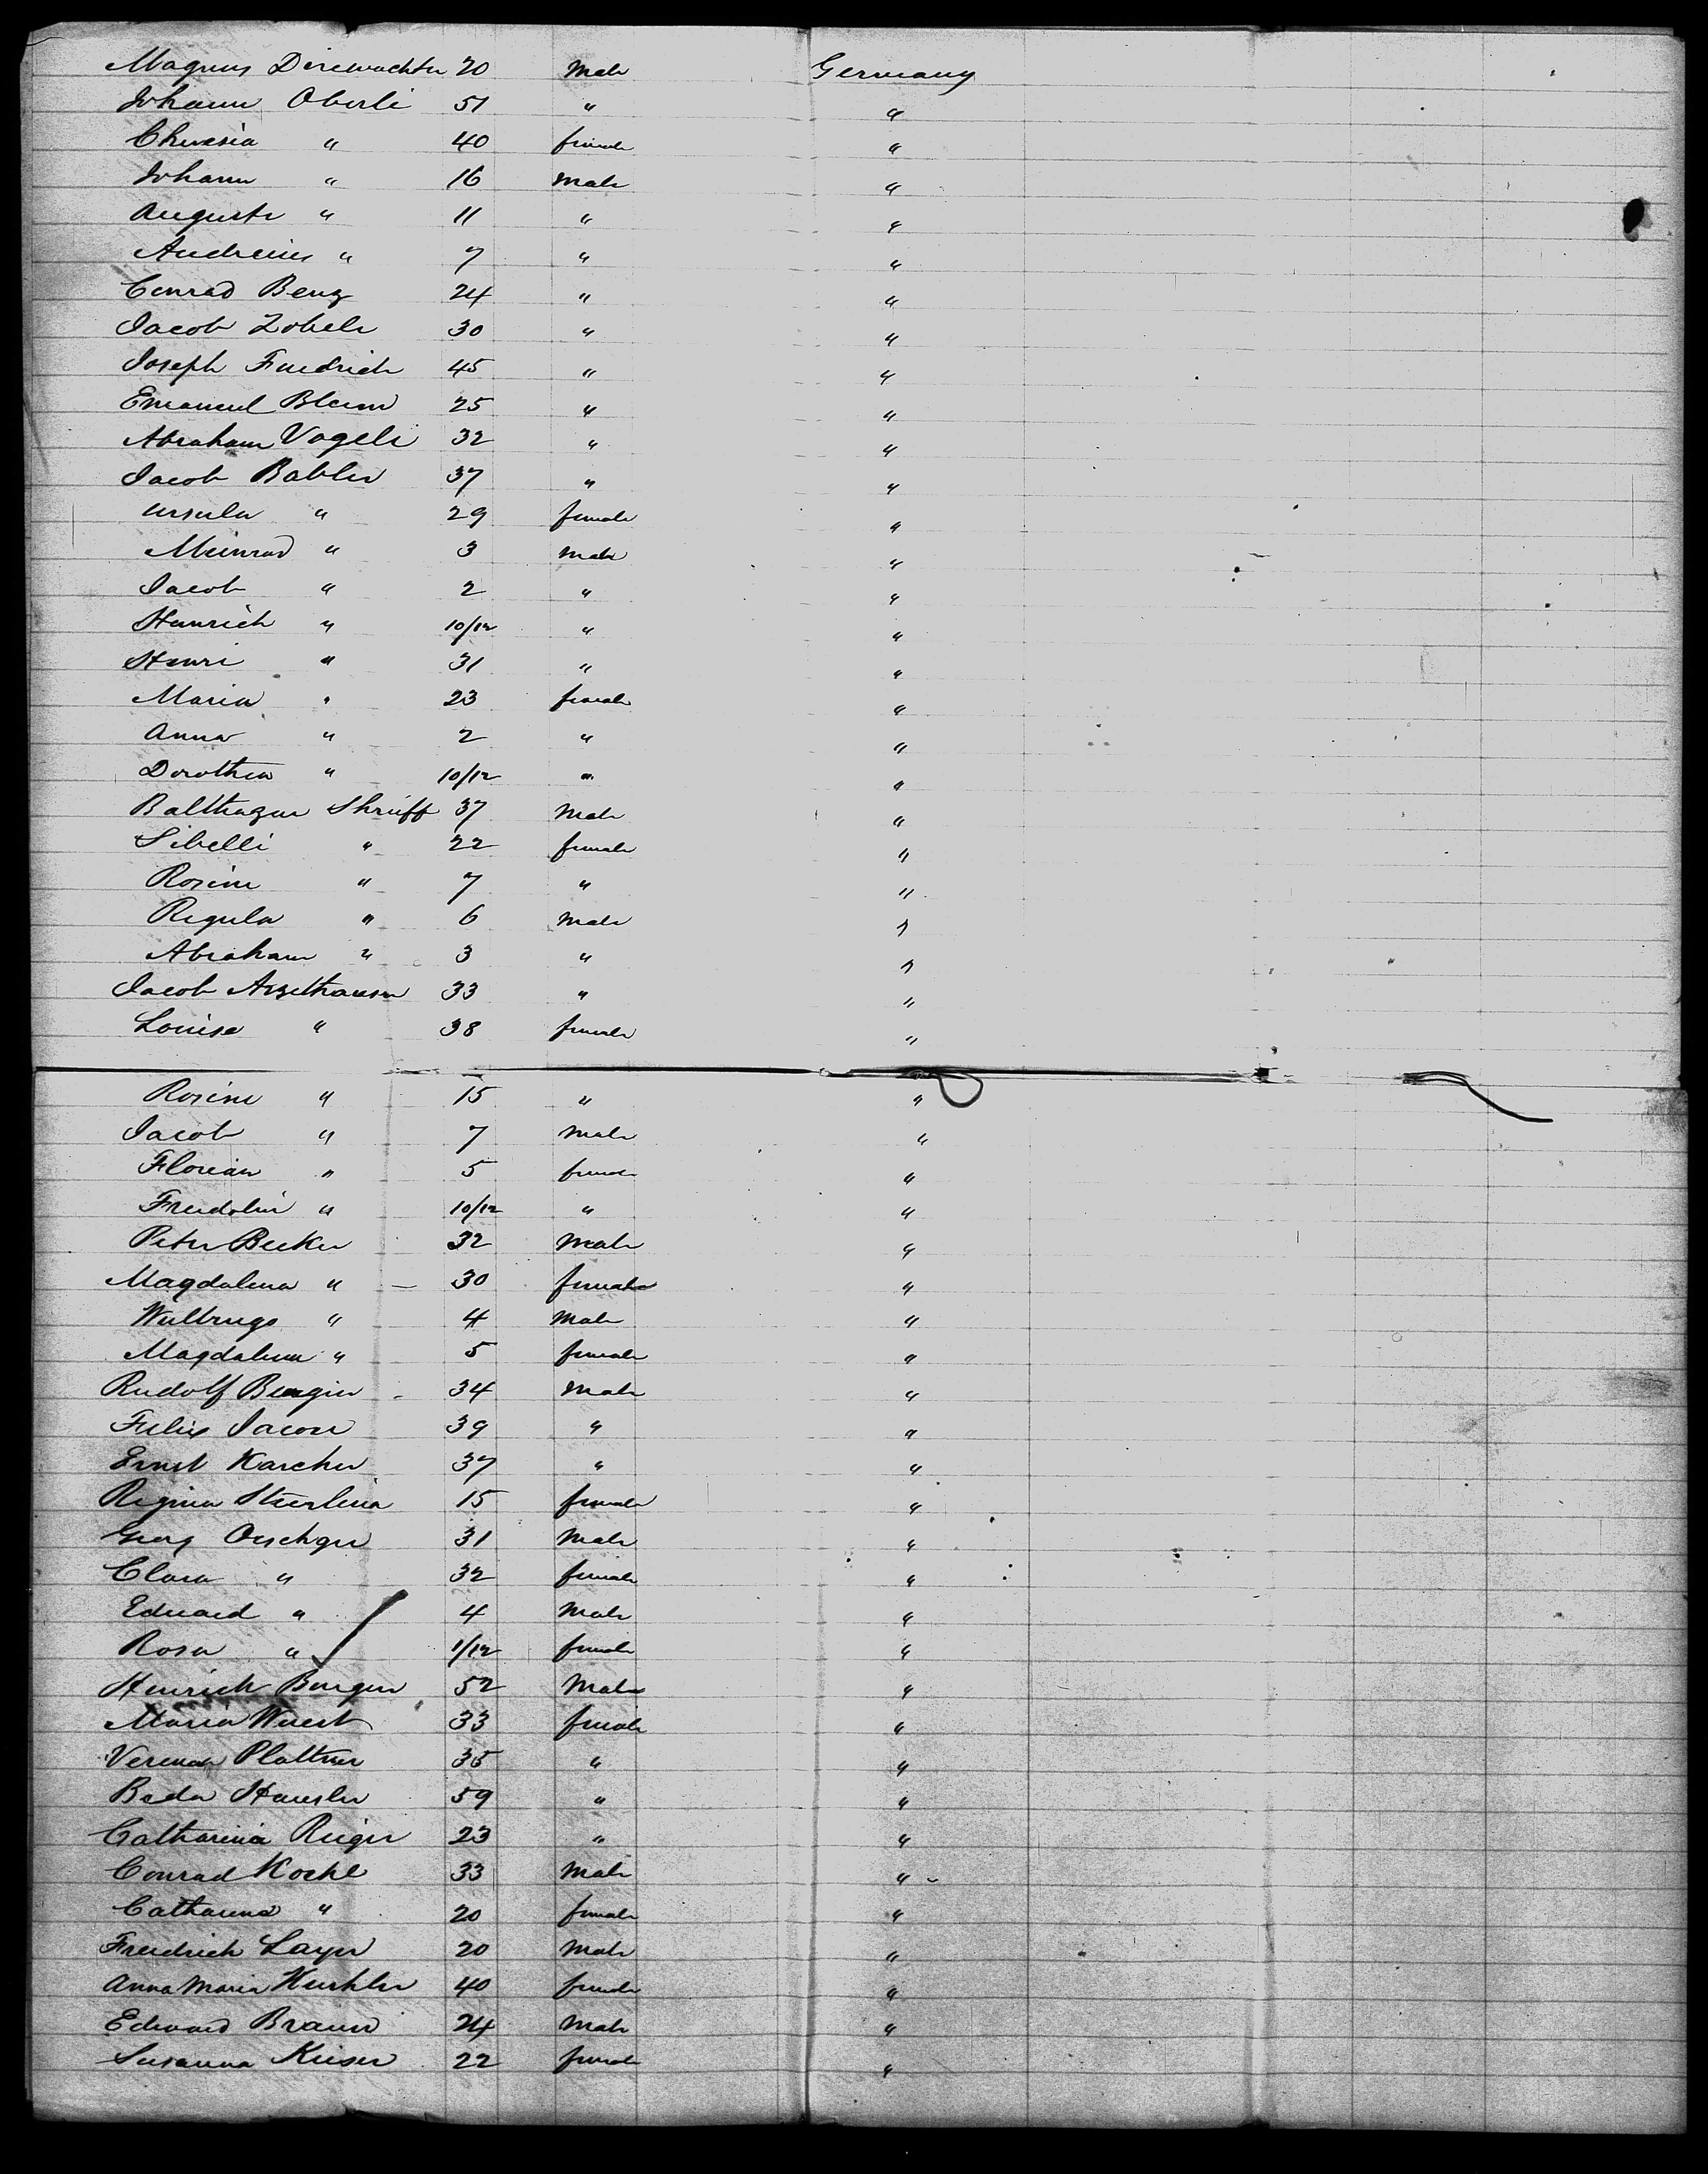 Magnus Direwachter 20 Male Germany
Johann Oberli 51 " "
Theresia " 40 female "
Johann " 16 Male "
Auguste " 11 " "
Andreas " 7 " "
Conrad Benz 24 " "
Jacob Zobele 30 " "
Joseph Friedrich 45 " "
Emanuel Blum 25 " "
Abraham Vogeli 32 " "
Jacob Babler 37 " "
Ursula " 29 female "
Meinrad " 3 Male "
Jacob " 2 " "
Heinrich " 10/12 " "
Henri " 31 " "
Maria " 23 female "
Anna " 2 " "
Dorothea " 10/12 " "
Balthazar Shrieff 37 Male "
Sibelli " 22 female "
Rosine " 7 " "
Regula " 6 Male "
Abraham " 3 " "
Jacob 33 " "
Louise " 38 female "
Rosine " 15 " "
Jacob " 7 Male "
Florian " 5 female "
Fridolin " 10/12 " "
Peter Becker 32 Male "
Magdalena " 30 female "
" 4 Male "
Magdalena " 5 female "
Rudolf 34 Male "
Felix 39 " "
Ernst Karcher 37 " "
Regina 15 female "
Georg Oeschger 31 Male "
Clara " 32 female "
Eduard " 4 Male "
Rosa " 1/12 female "
Heinrich Burger 52 Male "
Maria Wuest 33 female "
Verena Plattner 35 " "
Beda Hausler 59 " "
Catharina Rieger 23 " "
Conrad Koehl 33 Male "
Catharina " 20 female "
Friedrich Layer 20 Male "
Anna Maria 40 female "
Edward Braun 24 Male "
Susanna Kieser 22 female "